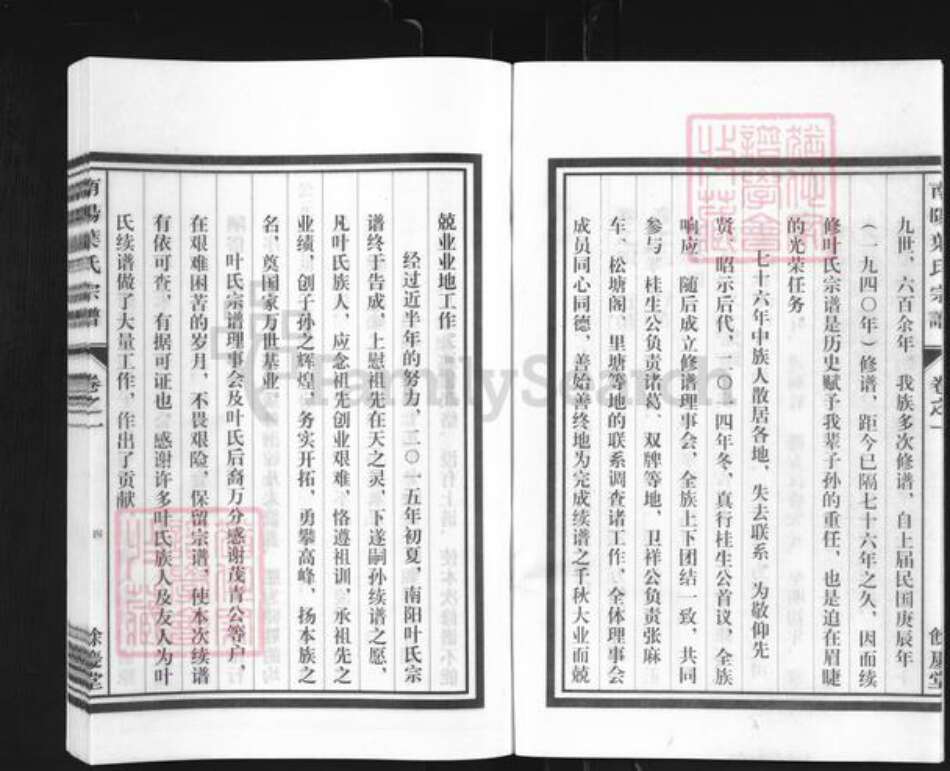 南阳叶氏宗谱
卷之一
馀庆堂
九世、六百余年，我族多次修谱，自上届民国庚辰年
（一九四〇年）修谱，距今已隔七十六年之久，因而续
修叶氏宗谱是历史赋予我辈子孙的重任，也是迫在眉睫
的光荣任务
七十六年中族人散居各地，失去联系，为敬仰先
贤、昭示后代，二〇一四年冬，真行桂生公首议，全族
响应，随后成立修谱理事会，全族上下团结一致，共同
参与，桂生公负责诸葛、双牌等地，卫祥公负责张麻
车、松塘阁、里塘等地的联系调查诸工作，全体理事会
成员同心同德，善始善终地为完成续谱之千秋大业而兢
兢业业地工作
经过近半年的努力，二〇一五年初夏，南阳叶氏宗
谱终于告成，上慰祖先在天之灵，下遂嗣孙续谱之愿，
凡叶氏族人，应念祖先创业艰难，恪遵祖训，承祖先之
业绩，创子孙之辉煌，务实开拓，勇攀高峰，扬本族之
名，奠国家万世基业
叶氏宗谱理事会及叶氏后裔万分感谢茂青公等户，
在艰难困苦的岁月，不畏艰险，保留宗谱，使本次续谱
有依可查，有据可证也，感谢许多叶氏族人及友人为叶
氏续谱做了大量工作，作出了贡献
南陽葉氏宗譜
卷之一
四
餘慶堂
FamilySearch